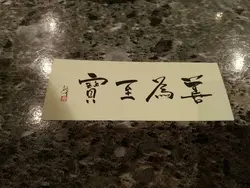 善為至寶